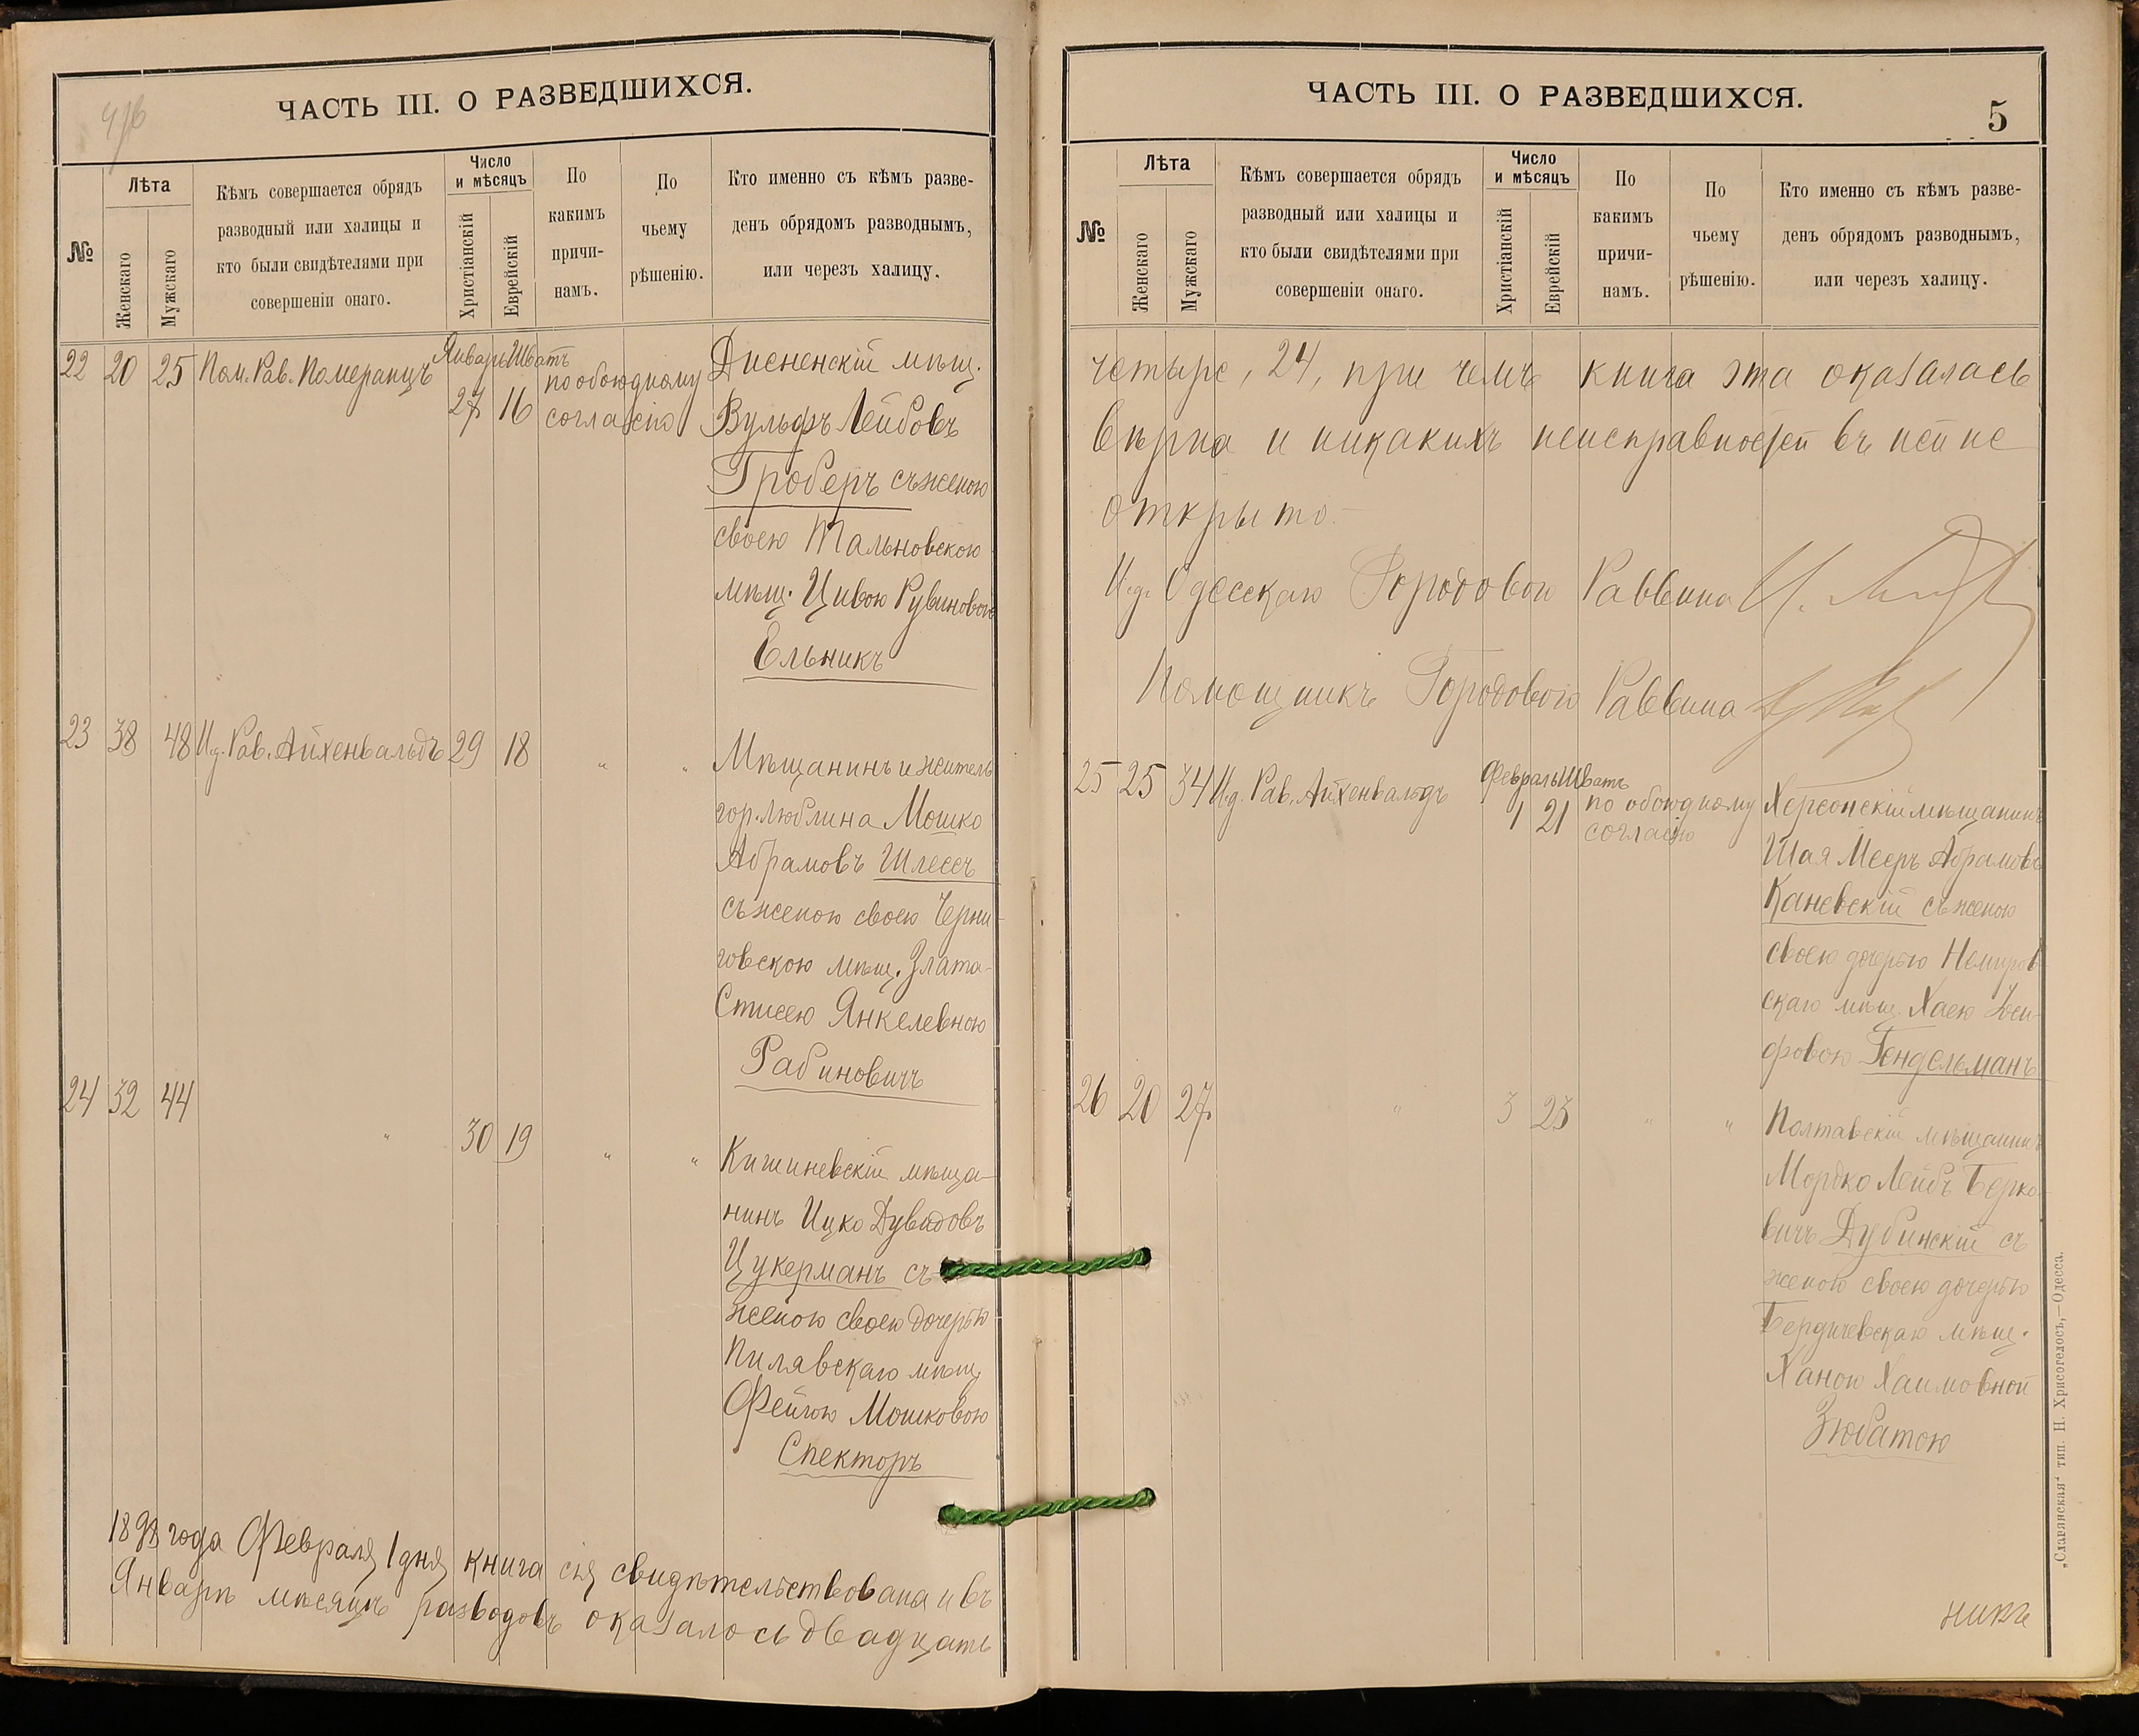 4/6
ЧАСТЬ III. О РАЗВЕДШИХСЯ.
№
Лѣта
Женскаго
Мужскаго
Кѣмъ совершается обрядъ
разводный или халицы и
кто были свидѣтелями при
совершеніи онаго.
Число
и мѣсяцъ
Христіанскій
Еврейскій
По
какимъ
причи-
намъ.
По
чьему
рѣшенію.
Кто именно съ кѣмъ разве-
денъ обрядомъ разводнымъ,
или черезъ халицу.
22 20 25 Пом. Рав. Померанцъ
Январь Шватъ
27 16
по обоюдному
согласію
Дисненскій мѣщ.
Вульфъ Лейбовъ
Гроберъ съ женою
своею Тальновскою
мѣщ. Цивою Рувиновою
Ельникъ
23 38 48 И.д. Рав. Айхенвальдъ 29 18 " "
Мѣщанинъ и житель
гор. Люблина Мошко
Абрамовъ Шлессъ
съ женою своею Черни-
говскою мѣщ. Злата-
Стисею Янкелевною
Рабиновичъ
24 32 44 " 30 19 " "
Кишиневскій мѣща-
нинъ Ицко Дувидовъ
Цукерманъ съ
женою своею дочерью
Пилявскаго мѣщ.
Фейгою Мошковою
Спекторъ
1898 года Февраля 1 дня книга сія свидѣтельствована и въ
Январѣ мѣсяцѣ разводовъ оказалось двадцать
ЧАСТЬ III. О РАЗВЕДШИХСЯ.
5
№
Лѣта
Женскаго
Мужскаго
Кѣмъ совершается обрядъ
разводный или халицы и
кто были свидѣтелями при
совершеніи онаго.
Число
и мѣсяцъ
Христіанскій
Еврейскій
По
какимъ
причи-
намъ.
По
чьему
рѣшенію.
Кто именно съ кѣмъ разве-
денъ обрядомъ разводнымъ,
или черезъ халицу.
четыре, 24, при чемъ книга эта оказалась
вѣрна и никакихъ неисправностей въ ней не
открыто.
И.д. Одесскаго Городового Раввина
Помощникъ Городового Раввина
25 25 34 И.д. Рав. Айхенвальдъ
Февраль Шватъ
1 21
по обоюдному
согласію
Херсонскій мѣщанинъ
Шая Мееръ Абрамовъ
Каневскій съ женою
своею дочерью Немиров
скаго мѣщ. Хаею Іоси-
фовою Гендельманъ
26 20 27 " 3 23 " "
Полтавскій мѣщанинъ
Мордко Лейбъ Берко-
вичъ Дубинскій съ
женою своею дочерью
Бердичевскаго мѣщ.
Ханою Хаимовной
Зюбатою
„Славянская“ тип. Н. Хрисогелосъ,—Одесса.